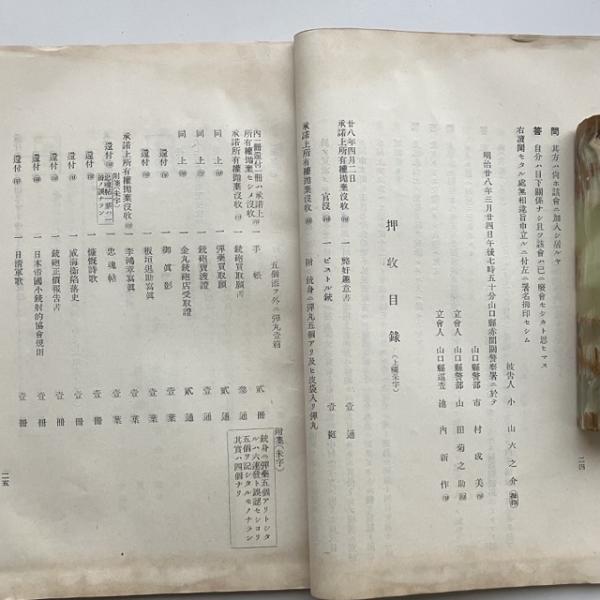 問 其方ハ尚ホ該會ニ加入シ居ルヤ
答 自分ハ目下關係ナシ且ツ該會ハ已ニ廢會セシカト思ヒマス
右讀聞ケタル處無相違旨申立ルニ付左ニ署名拇印セシム
明治廿八年三月廿四日午後七時五十分山口縣赤間關警察署ニ於テ
被告人 小山六之介 拇印
山口縣警部 市村成美 印
立會人 山口縣警部 山田菊之助 印
立會人 山口縣巡査 池內新作 印
二四
押收目錄 (上欄朱字)
廿八年四月二日
承諾上所有權拋棄沒收 印 一 趣意書 壹通
官沒 印 一 ピストル銃 壹挺
附 銃身ニ彈丸五個アリ及ヒ皮袋入リ彈丸
五個添ヲ外ニ彈丸壹箱
附箋(朱字)
銃身ニ彈藥五個アリトシタ
ルハ六連發ト誤認セシヨリ
五個ヲ記シタルモノナラン
其實ハ四個ナリ
內一冊還付一冊ハ承諾上
所有權拋棄セシメ沒收 印 一 手帳 貳冊
承諾上所有權拋棄沒收 印 一 銃砲買取願 壹通
同上 印 一 彈藥買取願 通
同上 印 一 銃砲賣渡證 貳通
一 金丸銃砲店受取證 壹通
還付 印 一 御眞影 壹葉
還付 印 一 板垣退助寫眞 壹葉
承諾上所有權拋棄沒收 印 一 李鴻章寫眞 壹葉
還付 印 一 忠魂帖 壹冊
附箋(朱字)
還付 印 一 慷慨詩歌 壹冊
還付 印 一 威海衞陷落史 壹冊
還付 印 一 銃砲正價報告書 壹冊
還付 印 一 日本帝國小銃射的協會規則 壹冊
還付 印 一 日淸軍歌 壹冊
二五